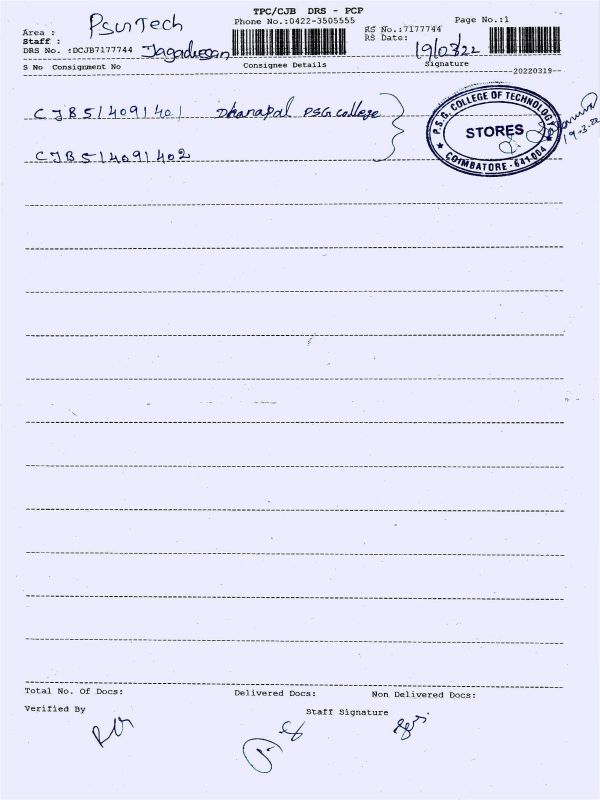 TPC/CJB DRS - PCP
Phone No.:0422-3505555
Page No.:1
Area : PSG Tech
RS No.:7177744
Staff :
RS Date: 19/03/22
DRS No. :DCJB7177744
S No Consignment No
Consignee Details
Signature
20220319
CJB514091401 Dhanapal PSG College
CJB514091402
P.S.G. COLLEGE OF TECHNOLOGY
STORES
COIMBATORE - 641 004
19.3.22
Total No. Of Docs:
Delivered Docs:
Non Delivered Docs:
Verified By
Staff Signature